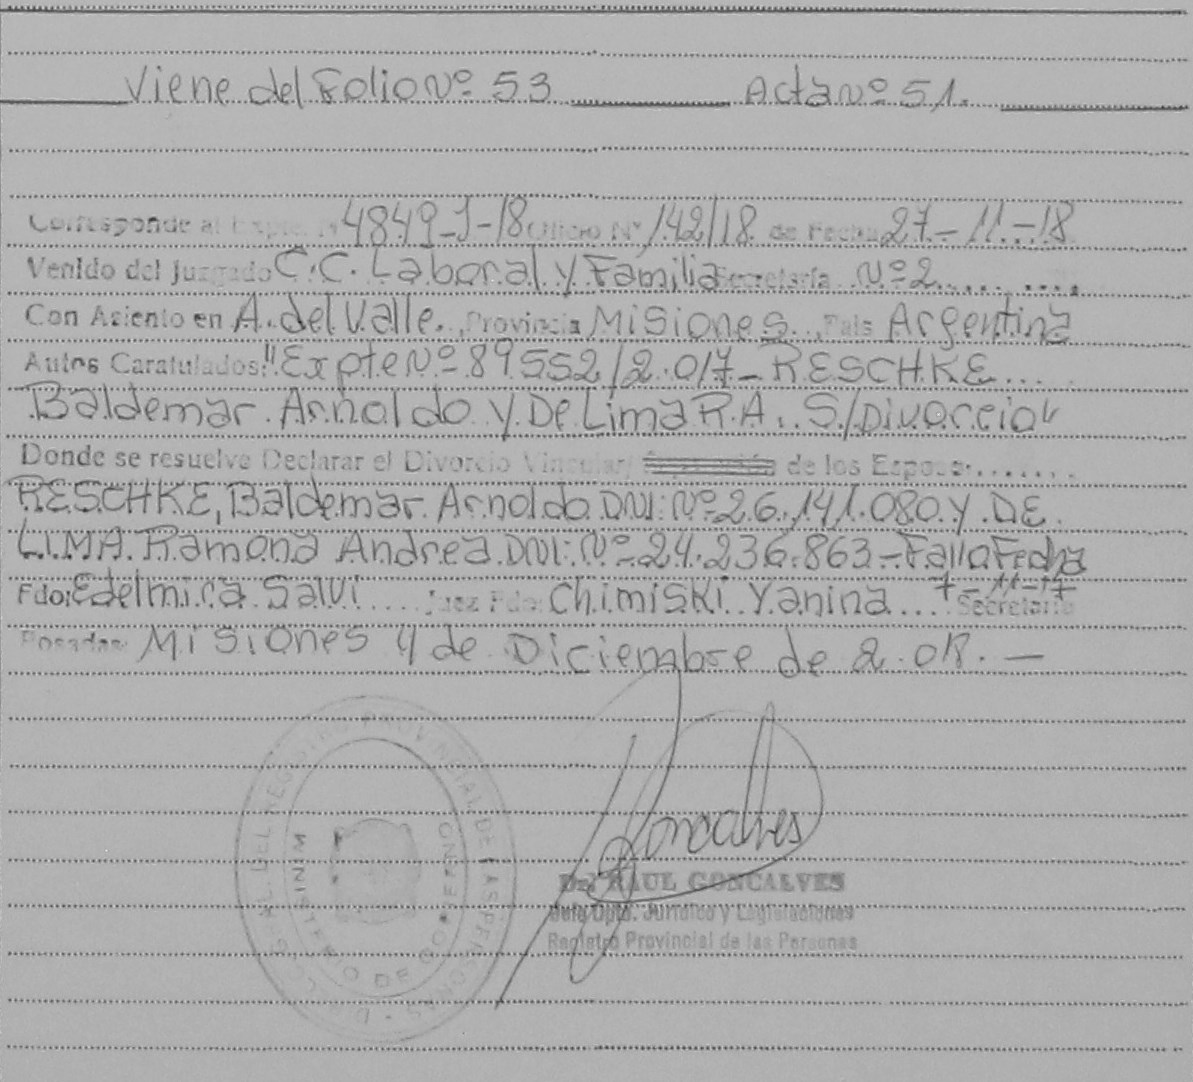 Viene del Folio Nº 53 Acta Nº 51.
Corresponde al Expte. Nº 4849-J-18 Oficio Nº 142/18 de Fecha 27-11-18
Venido del Juzgado C.C. Laboral y Familia Secretaría Nº 2
Con Asiento en A. del Valle. Provincia Misiones País Argentina
Autos Caratulados: "Expte Nº 89552/2.017- RESCHKE
Baldemar Arnoldo y De Lima R.A. S/Divorcio"
Donde se resuelve Declarar el Divorcio Vincular/ de los Esposos
RESCHKE, Baldemar Arnoldo DNI: Nº 26.141.080 y DE
LIMA Ramona Andrea DNI: Nº 24.236.863- Falla Fecha
7-11-17
Fdo: Edelmira Salvi Juez Fdo: Chimiski Yanina Secretaria
Posadas: Misiones 4 de Diciembre de 2.018.-
Goncalves
Dr. RAUL GONCALVES
Jefe Dpto. Jurídico y Legislaciones
Registro Provincial de las Personas
DEL REGISTRO PROVINCIAL DE LAS PERSONAS
MINISTERIO DE GOBIERNO